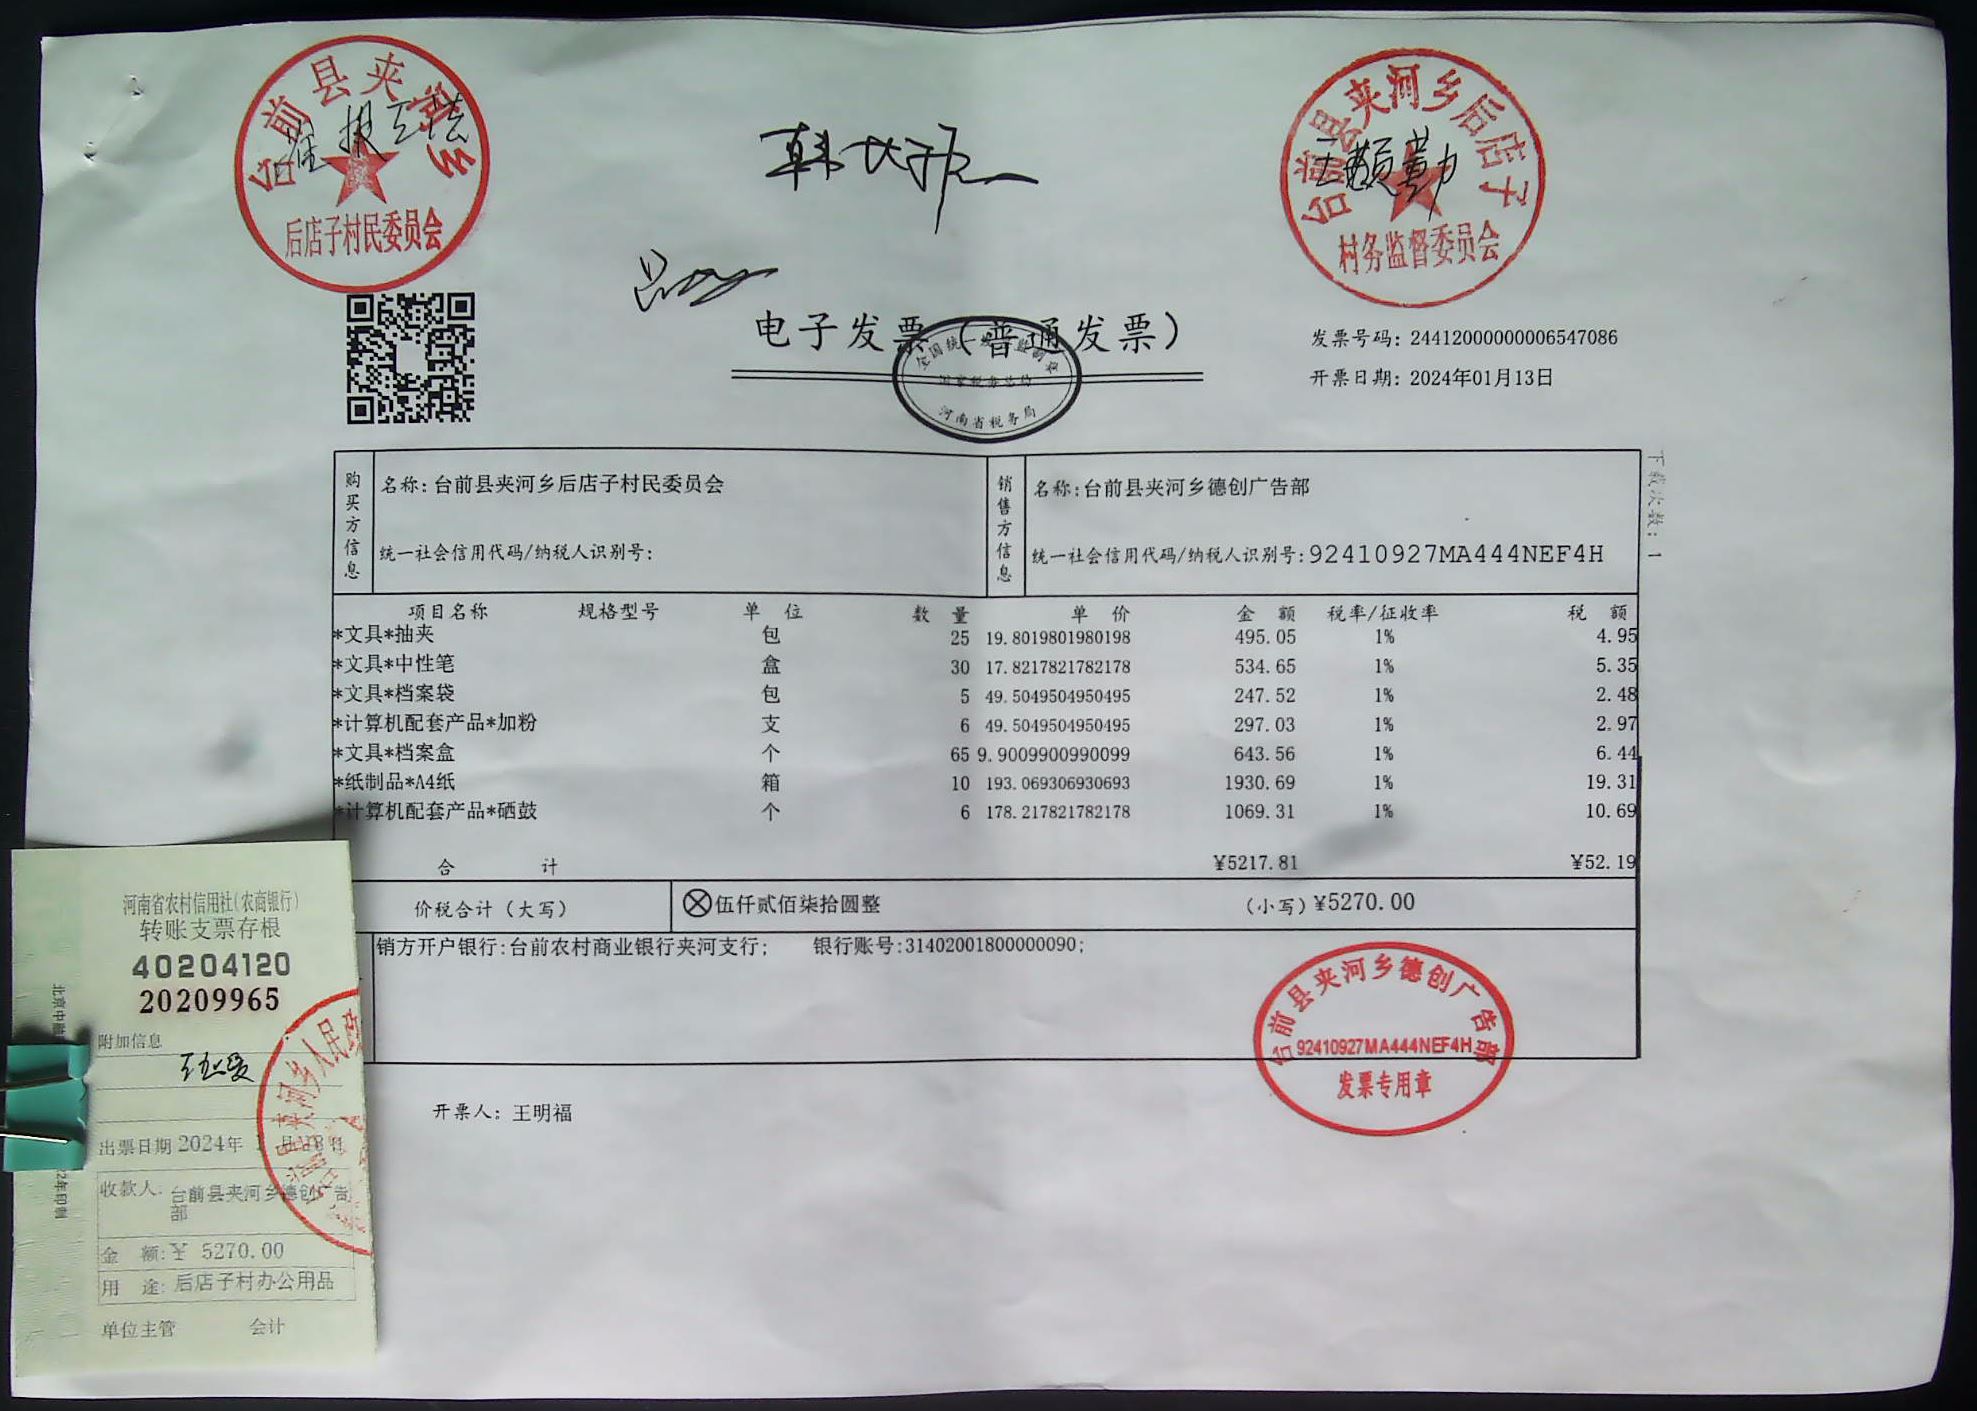 台前县夹河乡
后店子村民委员会
台前县夹河乡后店子
村务监督委员会
电子发票（普通发票）
全国统一发票监制章
国家税务总局
河南省税务局
发票号码：24412000000006547086
开票日期：2024年01月13日
购买方信息
名称：台前县夹河乡后店子村民委员会
统一社会信用代码/纳税人识别号：
销售方信息
名称：台前县夹河乡德创广告部
统一社会信用代码/纳税人识别号：92410927MA444NEF4H
下载次数：1
项目名称 规格型号 单位 数量 单价 金额 税率/征收率 税额
*文具*抽夹 包 25 19.8019801980198 495.05 1% 4.95
*文具*中性笔 盒 30 17.8217821782178 534.65 1% 5.35
*文具*档案袋 包 5 49.5049504950495 247.52 1% 2.48
*计算机配套产品*加粉 支 6 49.5049504950495 297.03 1% 2.97
*文具*档案盒 个 65 9.9009900990099 643.56 1% 6.44
*纸制品*A4纸 箱 10 193.069306930693 1930.69 1% 19.31
*计算机配套产品*硒鼓 个 6 178.217821782178 1069.31 1% 10.69
合计 ¥5217.81 ¥52.19
价税合计（大写） 伍仟贰佰柒拾圆整 （小写）¥5270.00
销方开户银行：台前农村商业银行夹河支行； 银行账号：31402001800000090；
台前县夹河乡德创广告部
92410927MA444NEF4H
发票专用章
开票人：王明福
河南省农村信用社（农商银行）
转账支票存根
40204120
20209965
附加信息
出票日期 2024年
收款人：台前县夹河乡德创广告部
金额：¥ 5270.00
用途：后店子村办公用品
单位主管 会计